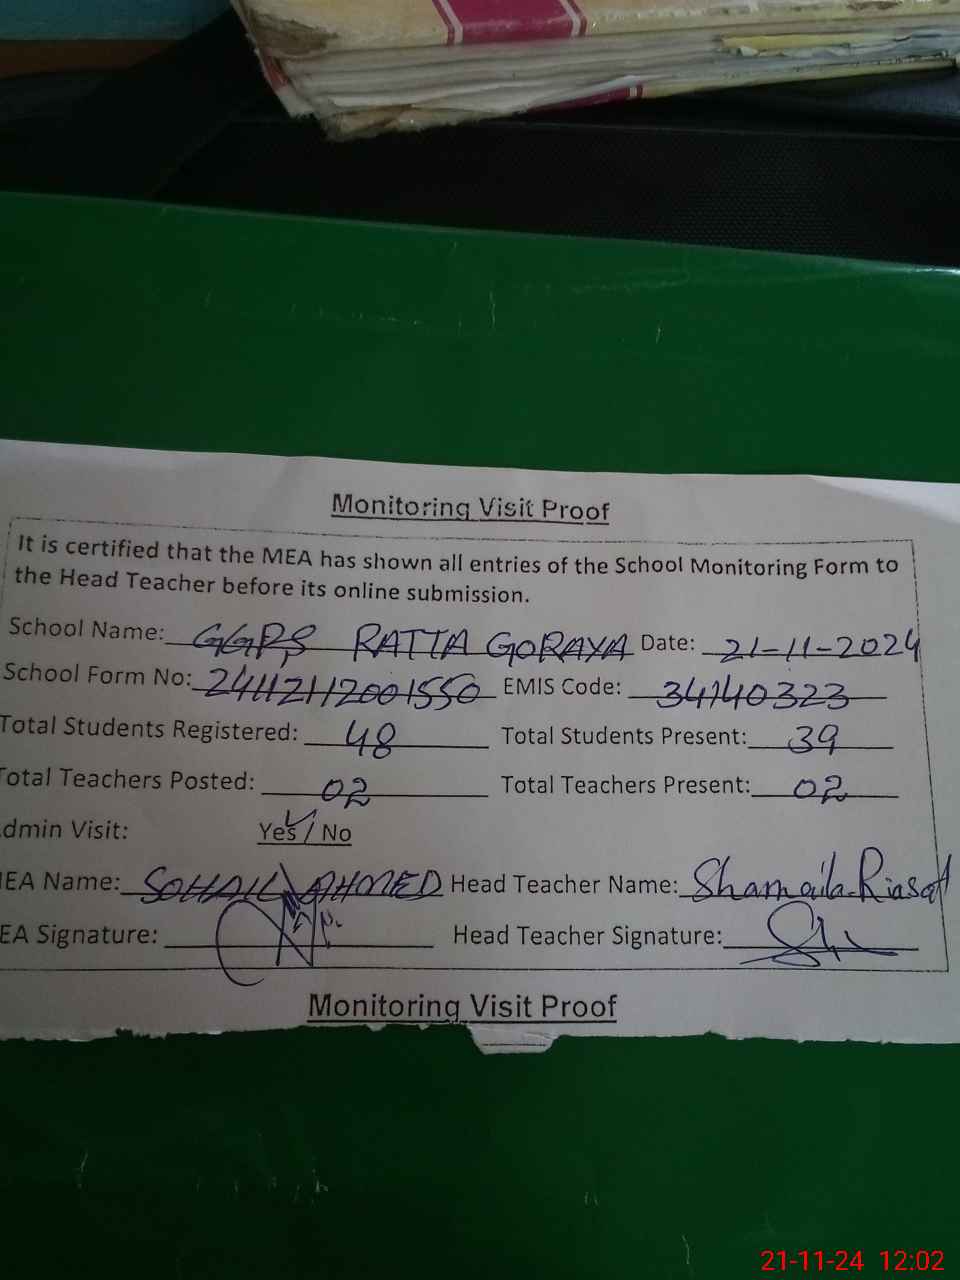 Monitoring Visit Proof
It is certified that the MEA has shown all entries of the School Monitoring Form to
the Head Teacher before its online submission.
School Name: GGPS RATTA GORAYA Date: 21-11-2024
School Form No: 24112112001550 EMIS Code: 34140323
Total Students Registered: 48 Total Students Present: 39
Total Teachers Posted: 02 Total Teachers Present: 02
dmin Visit: Yes / No
EA Name: SOHAIL AHMED Head Teacher Name: Shamaila Riasat
EA Signature: Head Teacher Signature:
Monitoring Visit Proof
21-11-24 12:02